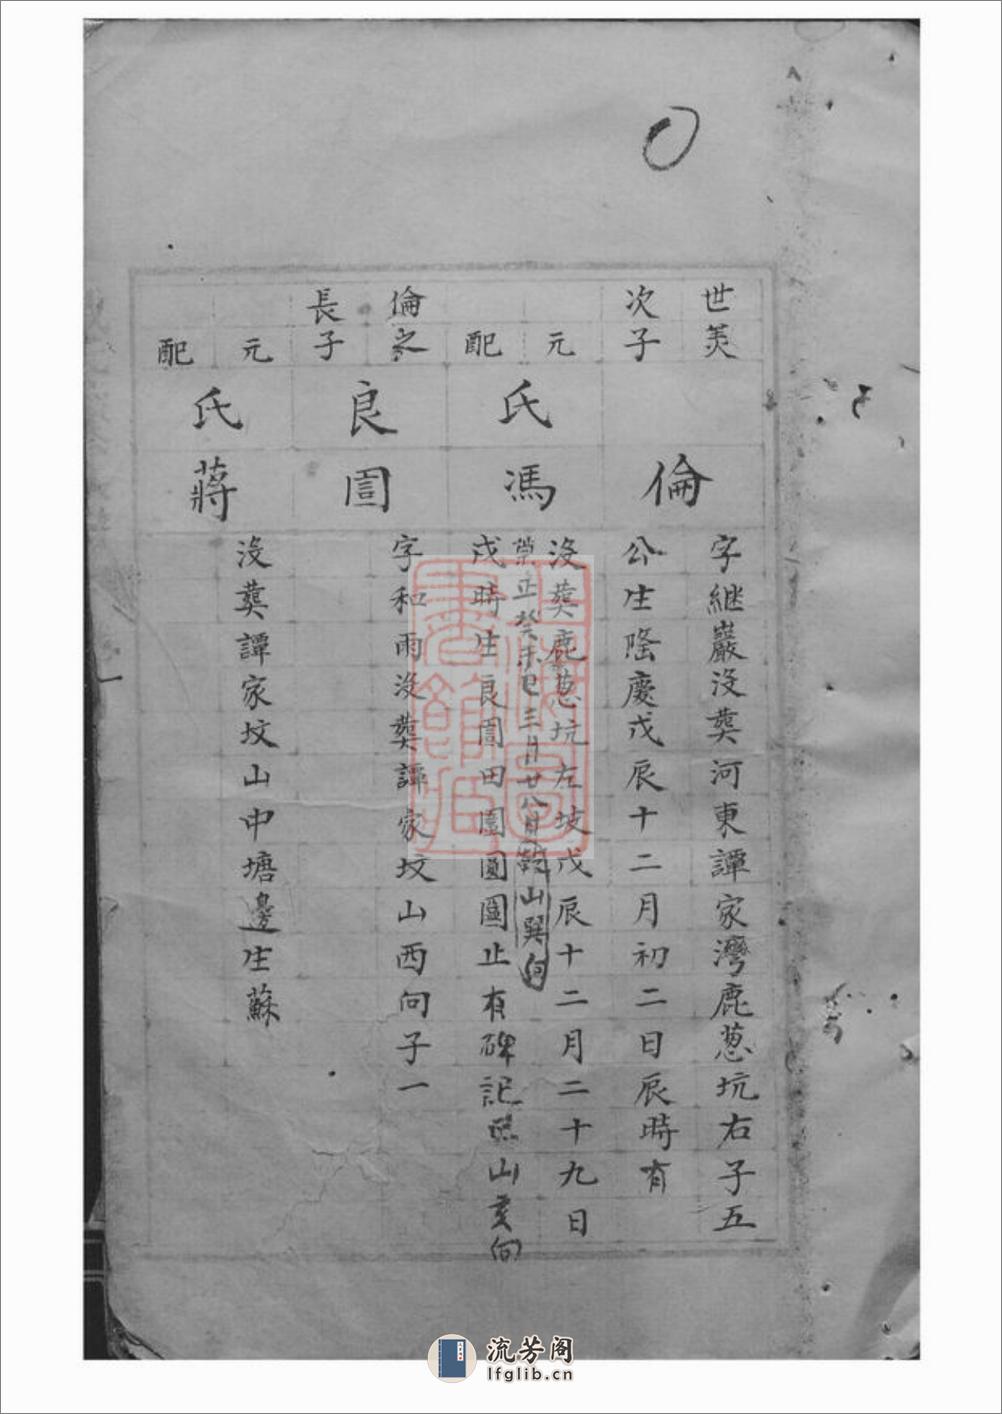 世美
次子
倫
字継巖沒葬河東譚家灣鹿葱坑右子五
公生隆慶戊辰十二月初二日辰時有
元
配
氏
馮
沒葬鹿葱坑左坡戊辰十二月二十九日
崇正癸未巳三月廿八日 山巽向
戌時生良訔田園圓圖止有碑記 山亥向
倫之
長子
良
訔
字和雨沒葬譚家坟山西向子一
元
配
氏
蔣
沒葬譚家坟山中塘邊生蘇
上海圖書館藏
流芳阁
lfglib.cn